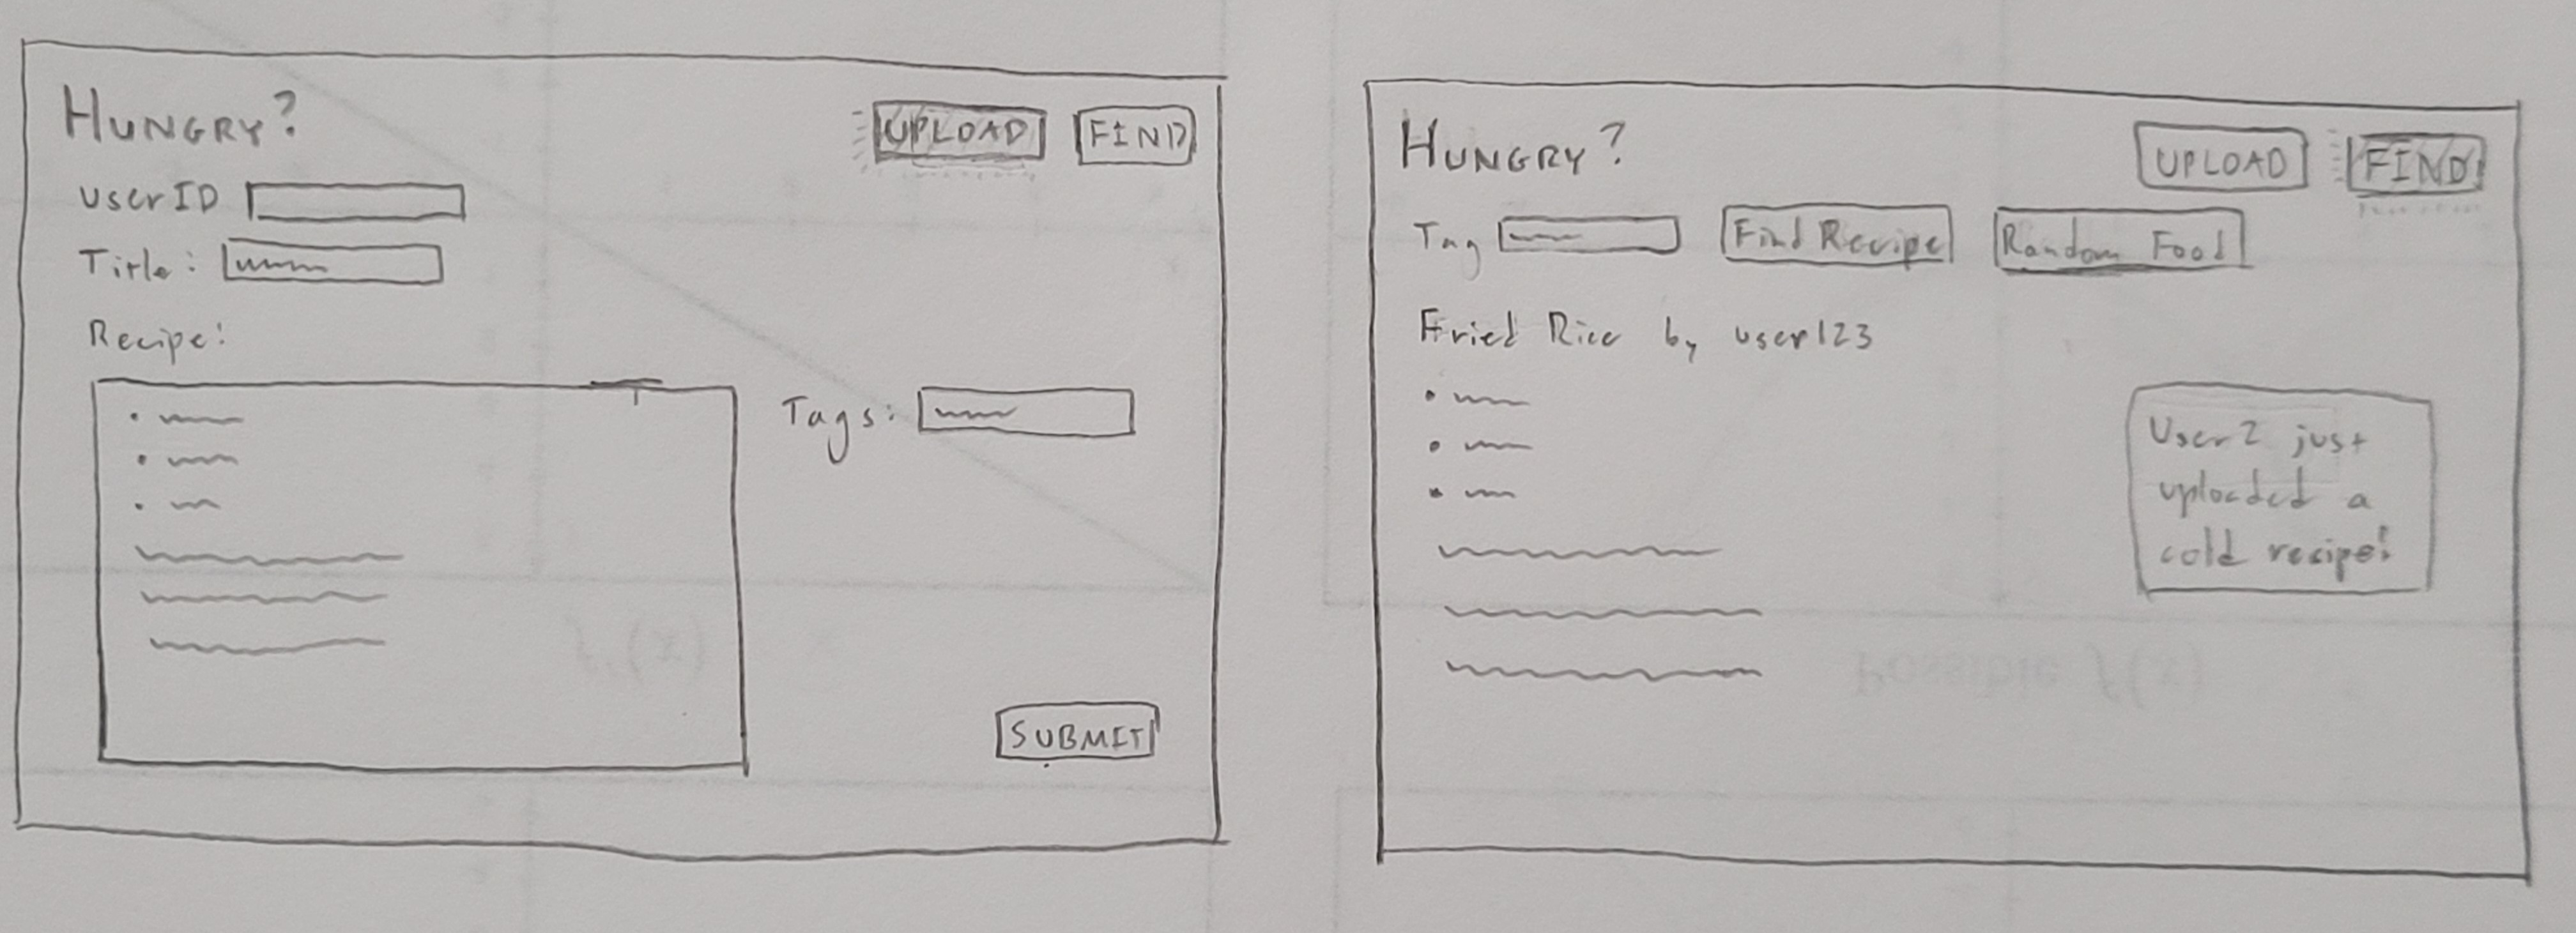 HUNGRY?
UPLOAD
FIND
UserID
Title:
Recipe:
Tags:
SUBMIT
HUNGRY?
UPLOAD
FIND
Tag
Find Recipe
Random Food
Fried Rice by user123
User2 just
uploaded a
cold recipe!
f'(x)
Possible f(x)